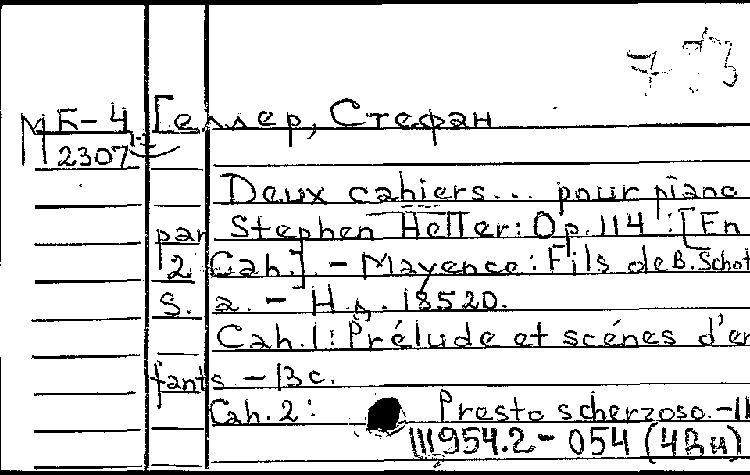 7
МБ-4 Геллер, Стефан
2307
Deux cahiers... pour piano
par Stephen Heller: Op. 114 : [En
2 Cah.]. - Mayence: Fils de B. Schot
S. a. - Н.д. 18520.
Cah. 1: Prélude et scénes d'en
fants - 13 c.
Cah. 2: Presto scherzoso. - 11
954.2 - 054 (4Ви)